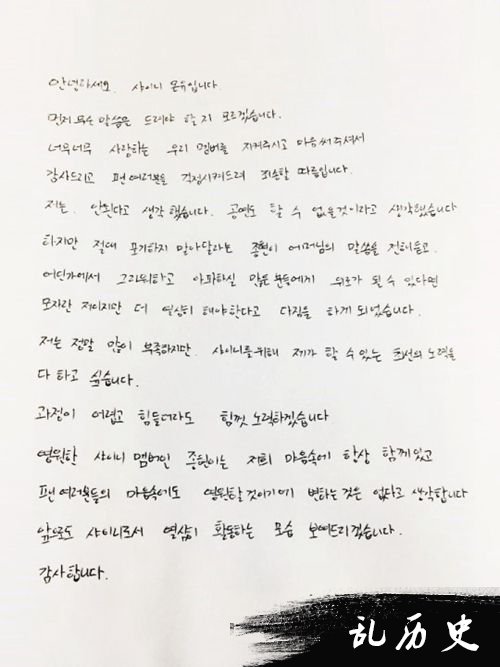 안녕하세요. 샤이니 온유입니다.
먼저 무슨 말씀을 드려야 할 지 모르겠습니다.
너무너무 사랑하는 우리 멤버를 지켜주시고 마음써주셔서
감사드리고 팬 여러분을 걱정시켜드려 죄송할 따름입니다.
저는. 안된다고 생각 했습니다. 공연도 할 수 없을것이라고 생각했습니다
하지만 절대 포기하지 말아달라는 종현이 어머님의 말씀을 전해듣고.
어딘가에서 그리워하고 아파하실 많은 분들에게 위로가 될 수 있다면
모자란 저이지만 더 열심히 해야한다고 다짐을 하게 되었습니다.
저는 정말 많이 부족하지만. 샤이니를위해 제가 할 수 있는 최선의 노력을
다 하고 싶습니다.
과정이 어렵고 힘들더라도 힘껏 노력하겠습니다
영원한 샤이니 멤버인 종현이는 저희 마음속에 항상 함께있고
팬여러분들의 마음속에도 영원할것이기에 변하는것은 없다고 생각합니다
앞으로도 샤이니로서 열심히 활동하는 모습 보여드리겠습니다.
감사합니다.
乱历史